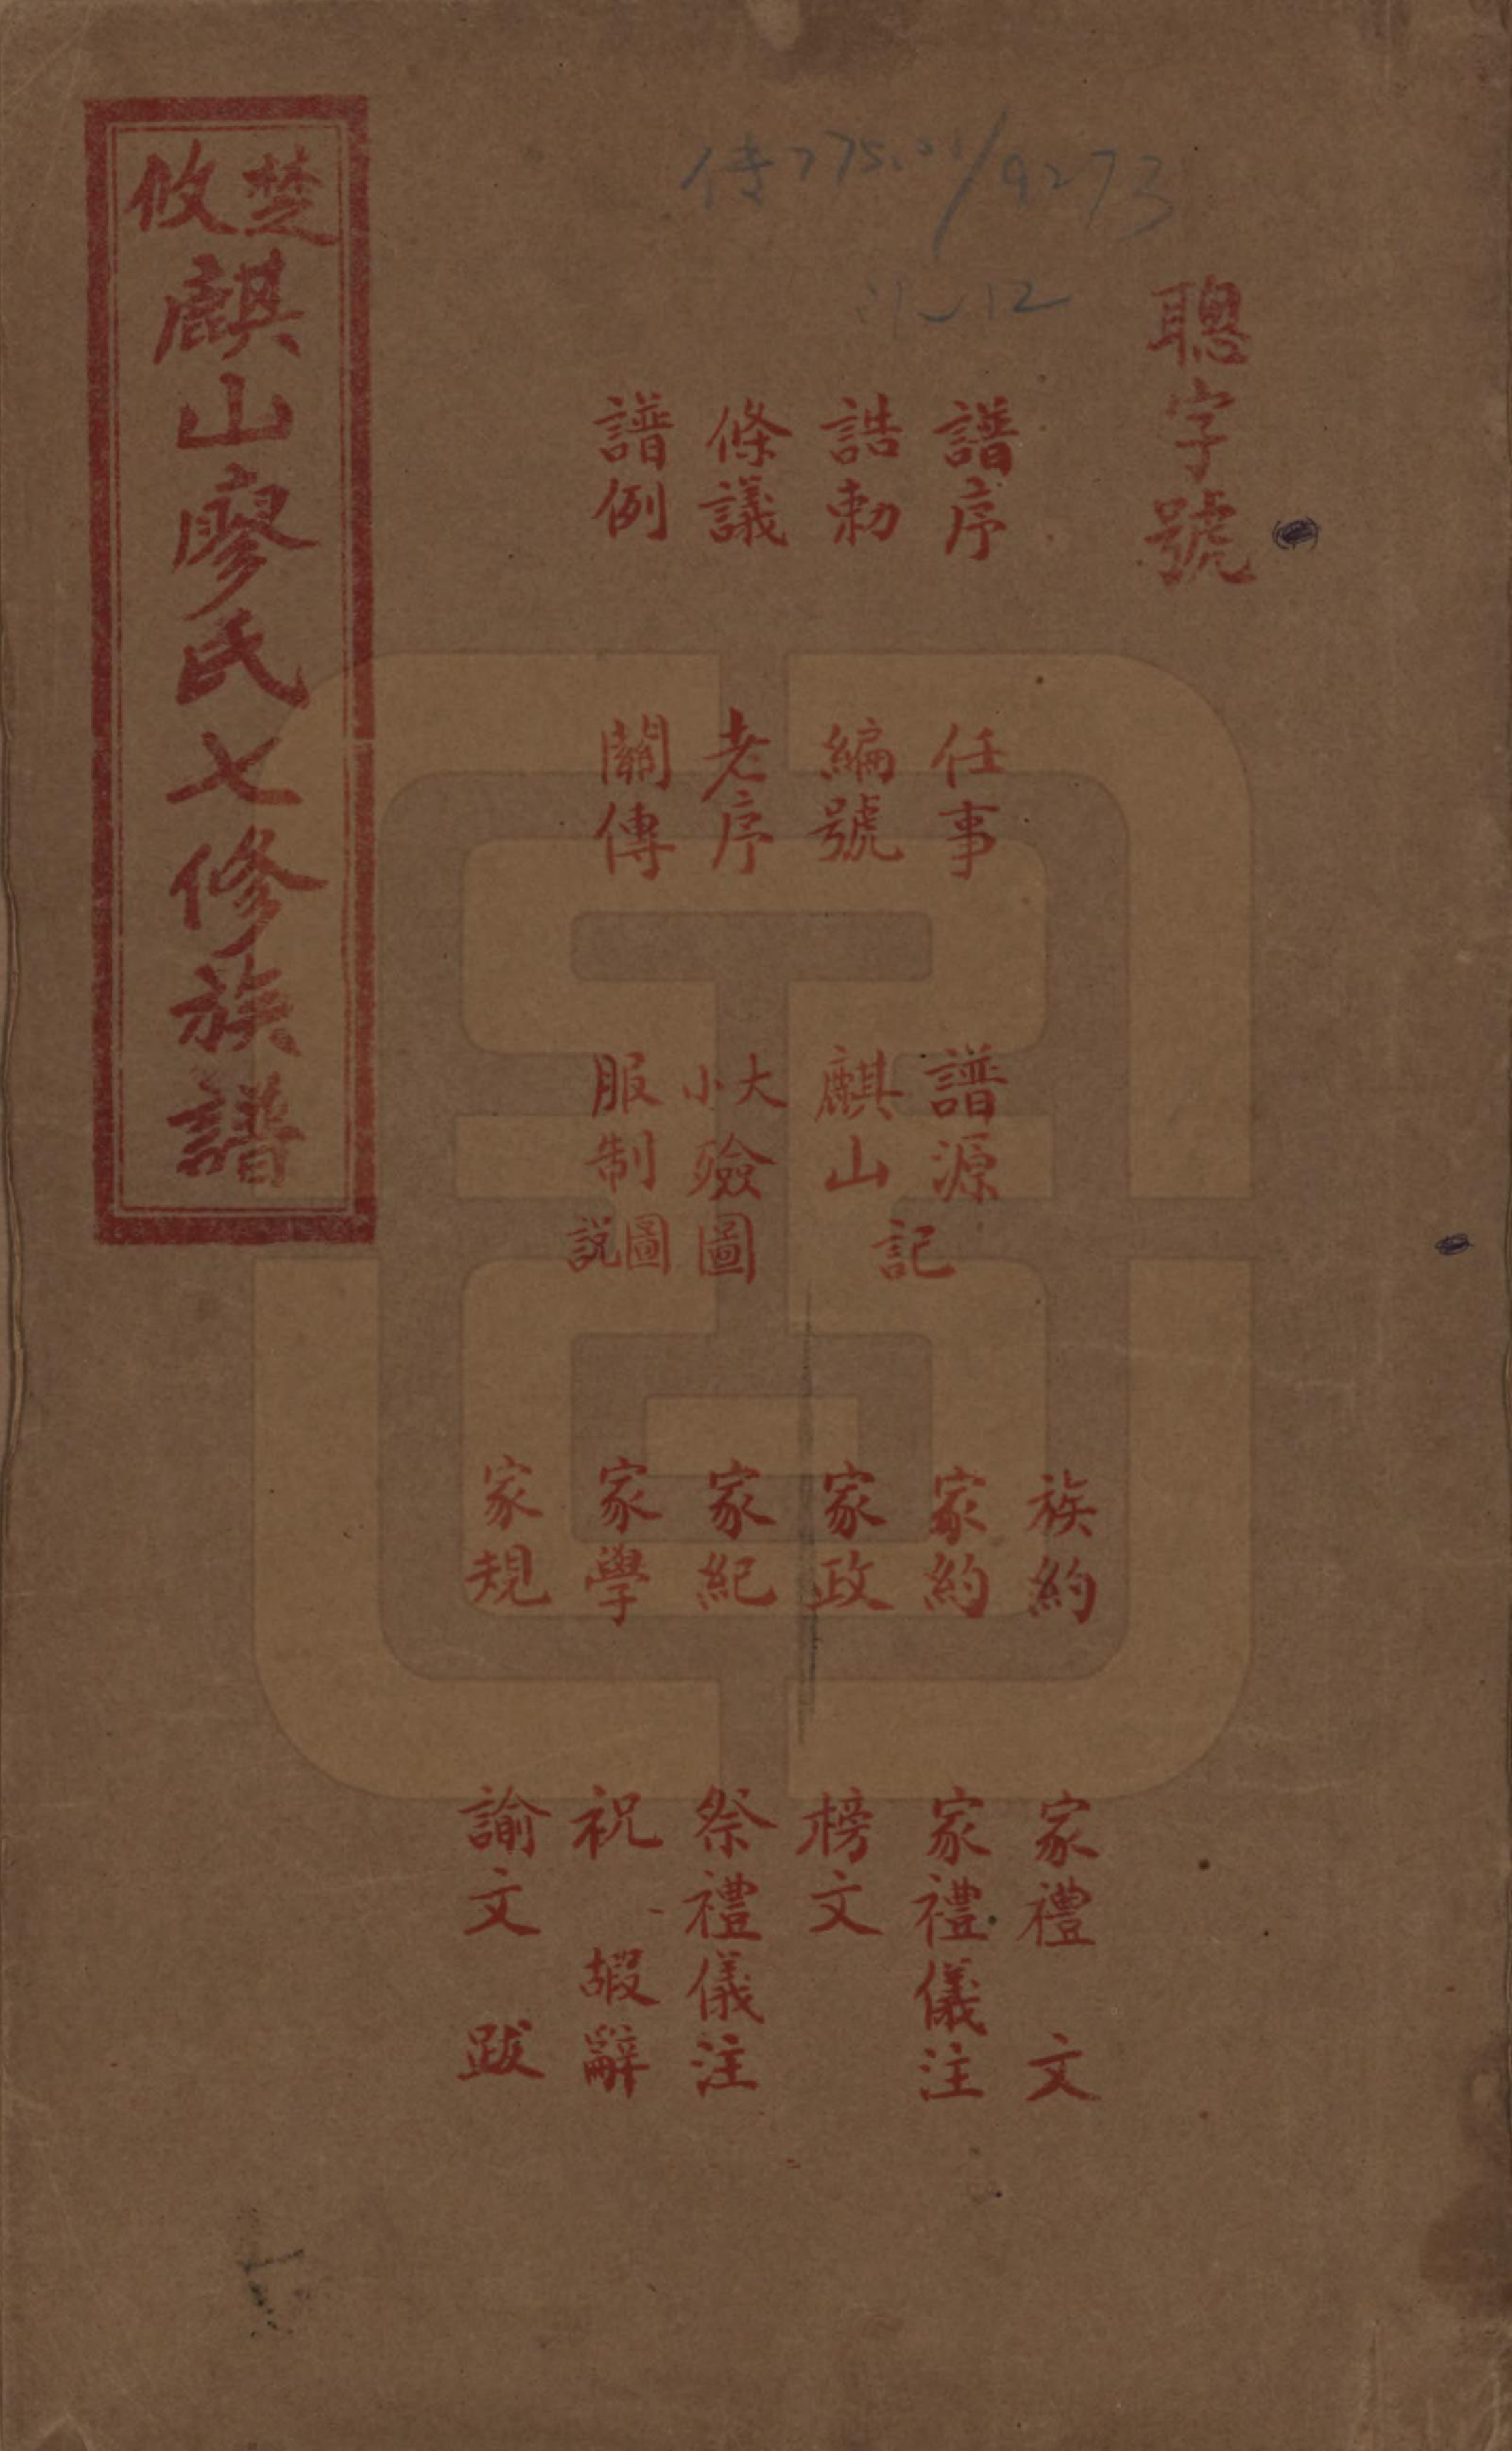 傳775.21/9273
:1~12
聰字號
譜序
誥勅
條議
譜例
任事
編號
老序
關傳
譜源
麒山記
大小殮圖
服制圖説
族約
家約
家政
家紀
家學
家規
家禮文
家禮儀注
榜文
祭禮儀注
祝嘏辭
諭文跋
楚攸麒山廖氏七修族譜